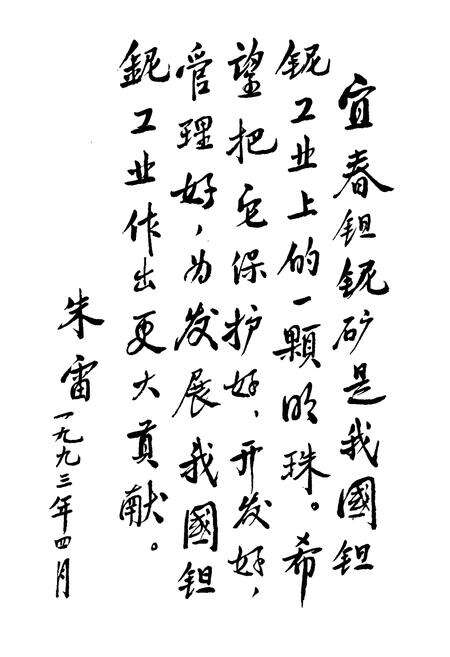 宜春钽鈮矿是我國钽
鈮工业上的一颗明珠。希
望把它保护好，开发好，
管理好，为发展我國钽
鈮工业作出更大贡献。
朱雷
一九九三年四月